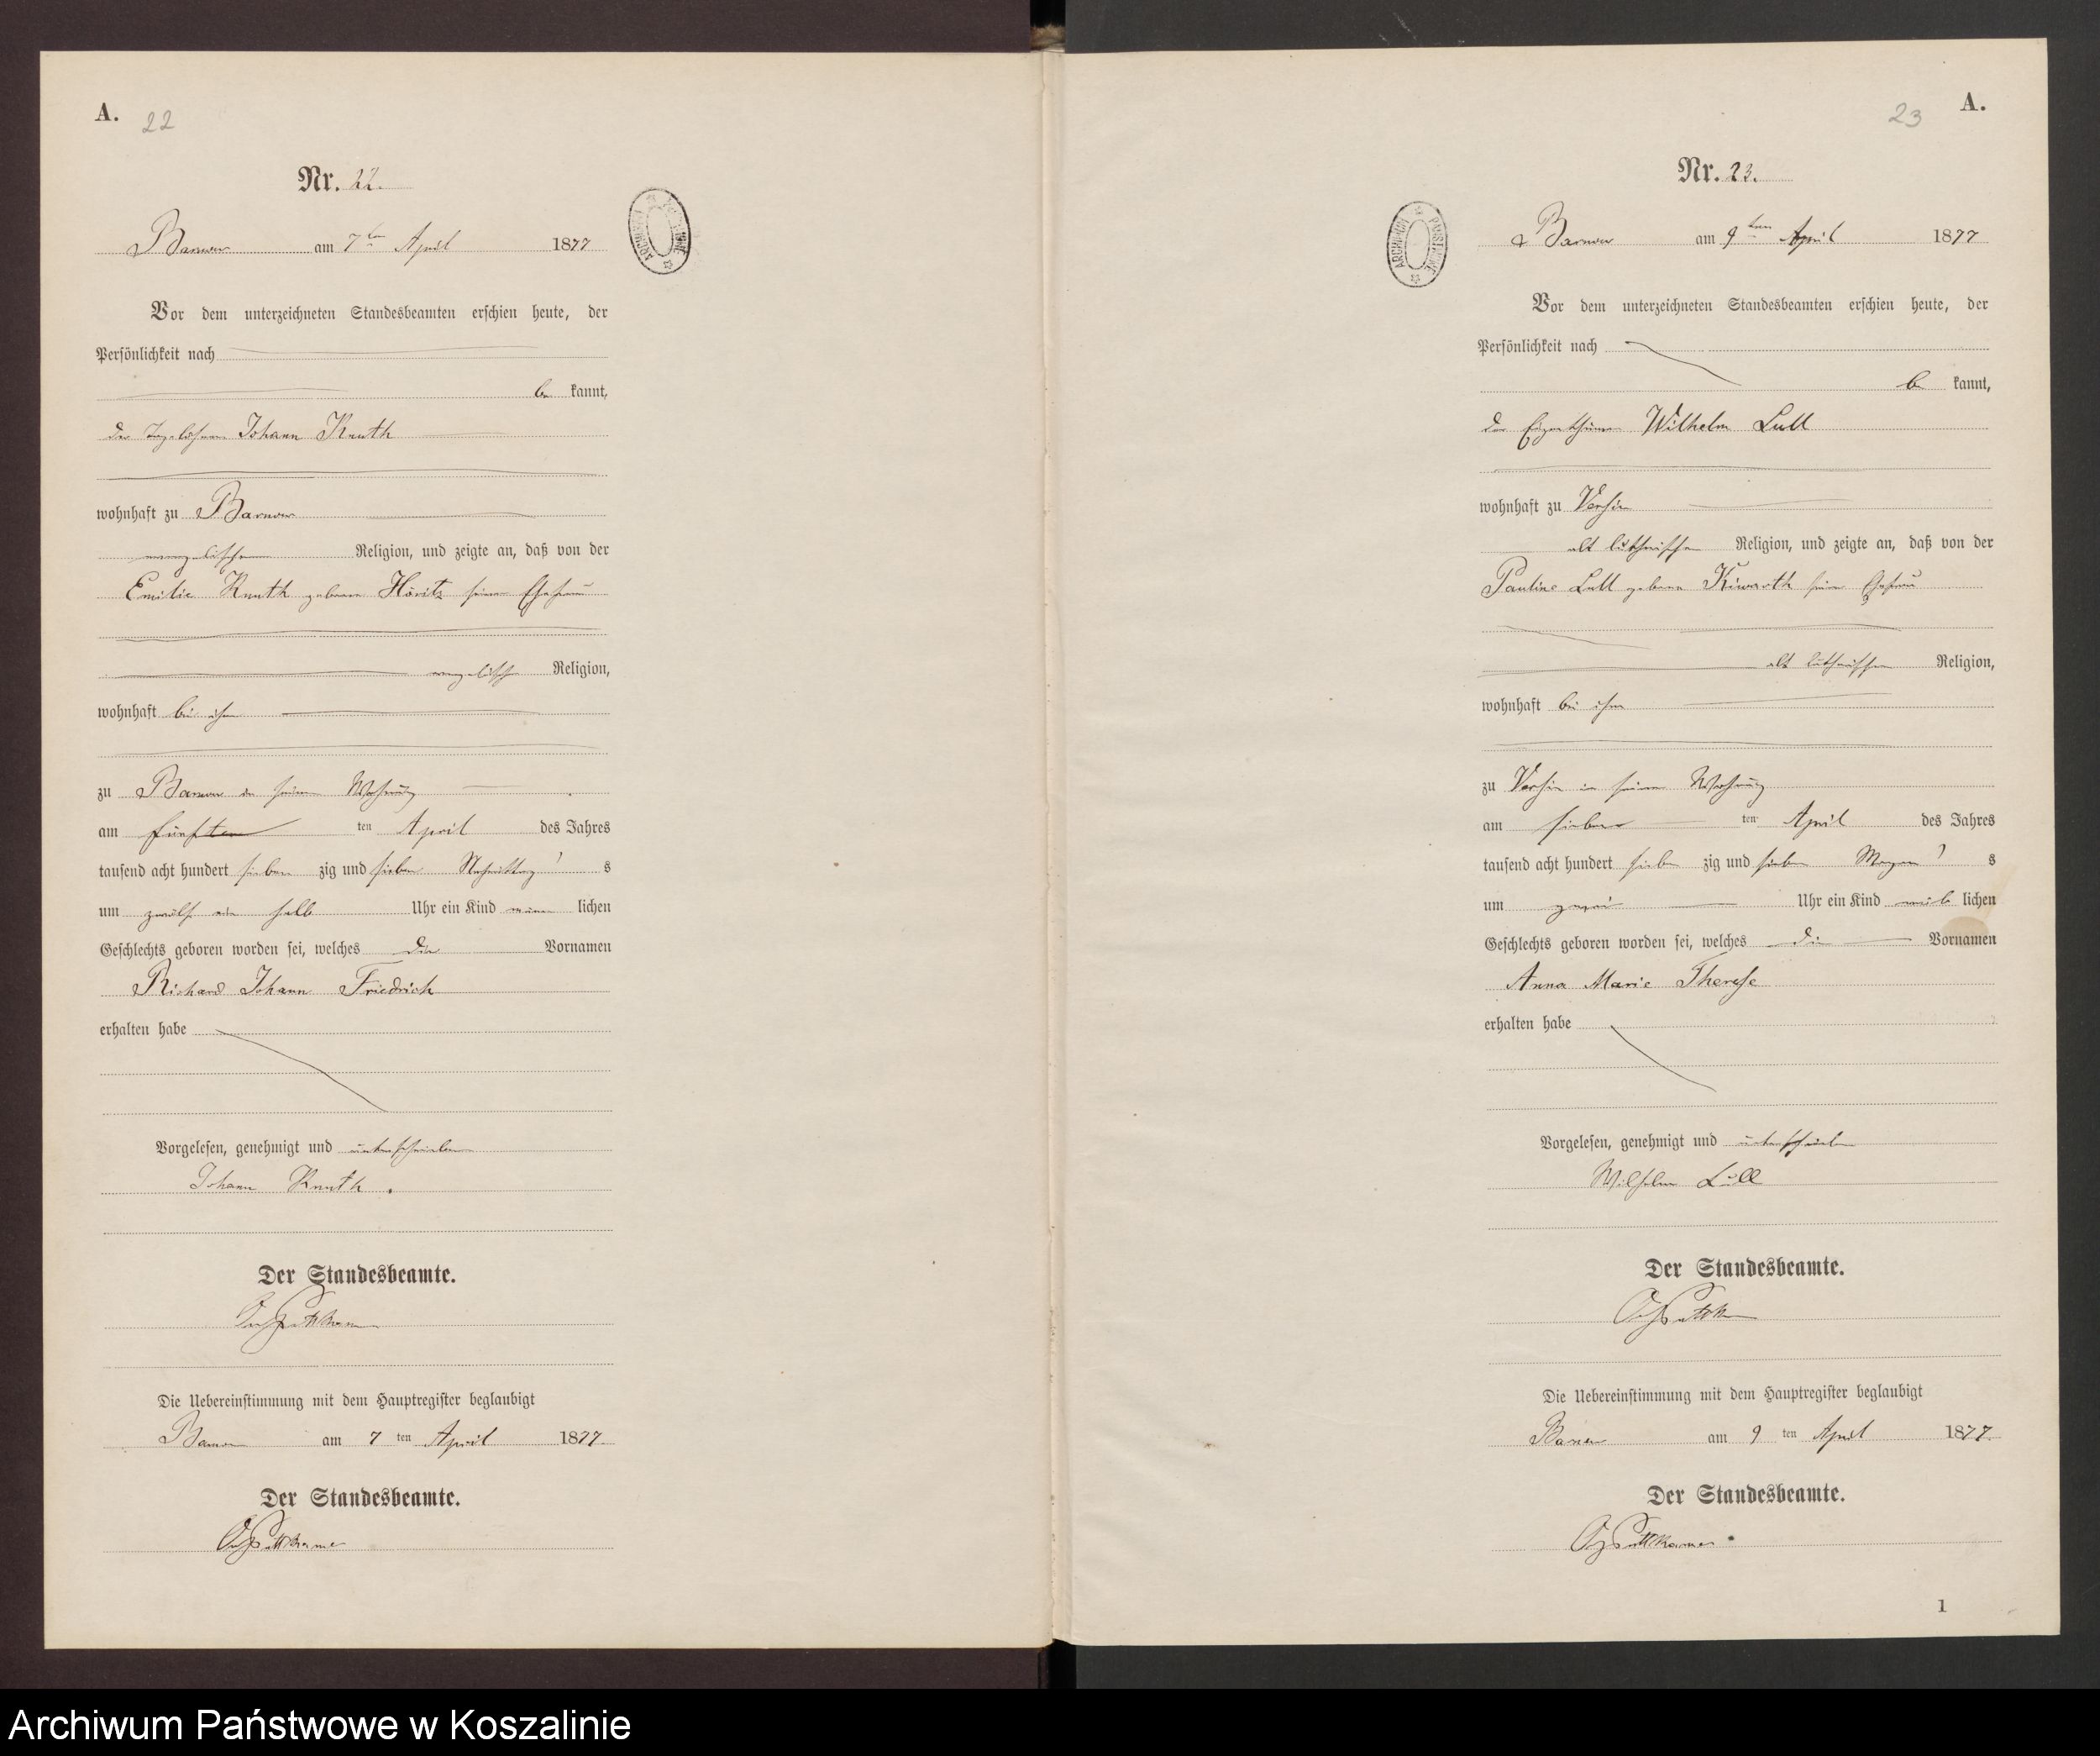 A. 22
Nr. 22.
Barnow am 7ten April 1877
Vor dem unterzeichneten Standesbeamten erschien heute, der
Persönlichkeit nach
be kannt,
der Tagelöhner Johann Knuth
wohnhaft zu Barnow
evangelischer Religion, und zeigte an, daß von der
Emilie Knuth geborene Höritz seiner Ehefrau
evangelischer Religion,
wohnhaft bei ihm
zu Barnow in seiner Wohnung
am fünften ten April des Jahres
tausend acht hundert sieben zig und sieben Nachmittag s
um zwölf ein halb Uhr ein Kind männ lichen
Geschlechts geboren worden sei, welches die Vornamen
Richard Johann Friedrich
erhalten habe
Vorgelesen, genehmigt und unterschrieben
Johann Knuth.
Der Standesbeamte.
Puttkamer
Die Uebereinstimmung mit dem Hauptregister beglaubigt
Barnow am 7 ten April 1877
Der Standesbeamte.
Puttkamer
ARCHIWUM PAŃSTWOWE
23 A.
Nr. 23.
Barnow am 9ten April 1877
Vor dem unterzeichneten Standesbeamten erschien heute, der
Persönlichkeit nach
be kannt,
der Eigenthümer Wilhelm Lüll
wohnhaft zu Versin
alt lutherischer Religion, und zeigte an, daß von der
Pauline Lüll geborene seiner Ehefrau
alt lutherischer Religion,
wohnhaft bei ihm
zu Versin in seiner Wohnung
am sieben ten April des Jahres
tausend acht hundert sieben zig und sieben Morgen s
um zwei Uhr ein Kind weib lichen
Geschlechts geboren worden sei, welches die Vornamen
Anna Marie Therese
erhalten habe
Vorgelesen, genehmigt und unterschrieben
Wilhelm Lüll
Der Standesbeamte.
Die Uebereinstimmung mit dem Hauptregister beglaubigt
Barnow am 9 ten April 1877
Der Standesbeamte.
Puttkamer
1
ARCHIWUM PAŃSTWOWE
Archiwum Państwowe w Koszalinie